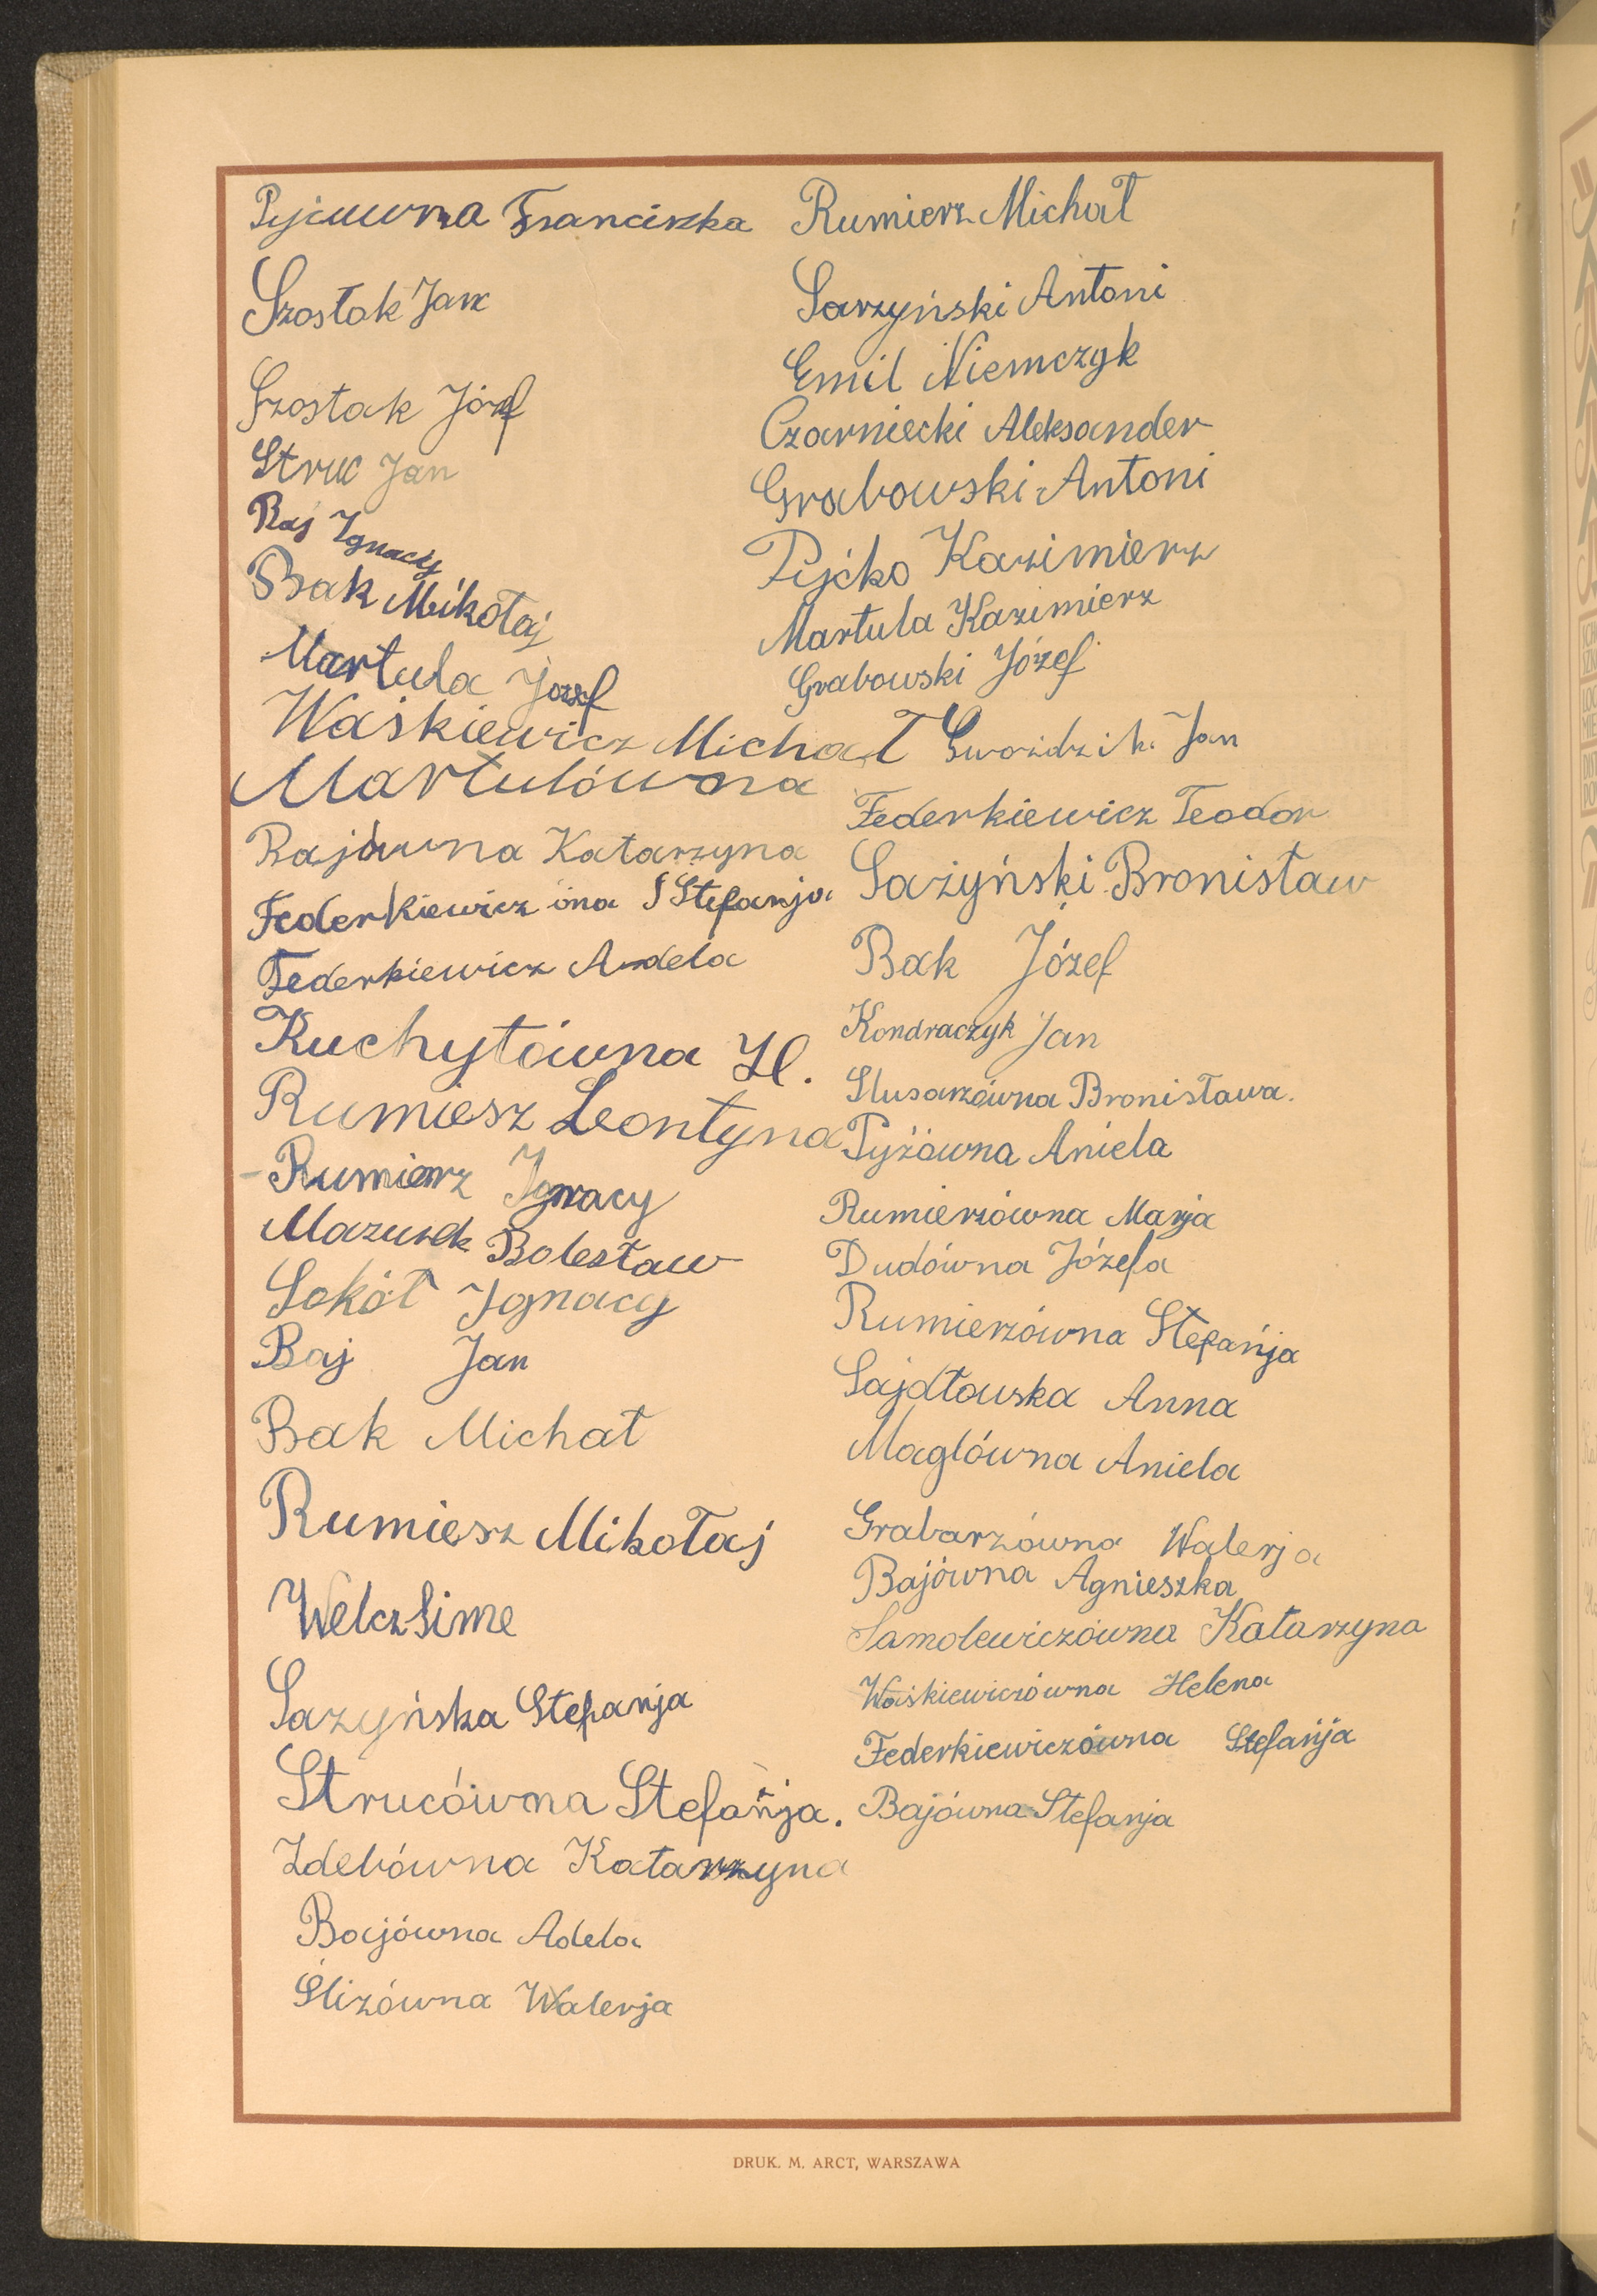 Franciszka
Szostak Jan
Szostak Józef
Struc Jan
Baj Ignacy
Bak Mikołaj
Martula Jozef
Waśkiewicz Michał
Martulówna
Bajówna Katarzyna
Federkiewicz óna Stefanja
Federkiewicz Andela
Kuchytówna H.
Rumiesz Leontyna
Rumierz Ignacy
Mazurek Bolesław
Sokół Ignacy
Baj Jan
Bak Michał
Rumiesz Mikołaj
Welcz Sime
Sazyńska Stefanja
Strucówna Stefańja.
Zdebówna Katarzyna
Bajówna Adela
Ślizówna Walerja
Rumierz Michał
Sarzyński Antoni
Emil Niemczyk
Czarniecki Aleksander
Grabowski Antoni
Pyćko Kazimierz
Martula Kazimierz
Grabowski Józef
Gwoździk Jan
Federkiewicz Teodor
Sażyński Bronisław
Bak Józef
Kondraczyk Jan
Slusarzówna Bronisława.
Pyżówna Aniela
Rumierzówna Marja
Dudówna Józefa
Rumierzówna Stefańja
Sajdłowska Anna
Maglówna Aniela
Grabarzówna Walerja
Bajówna Agnieszka
Samolewiczówna Katarzyna
Waśkiewiczówna Helena
Federkiewiczówna Stefańja
Bajówna Stefanja
DRUK. M. ARCT, WARSZAWA